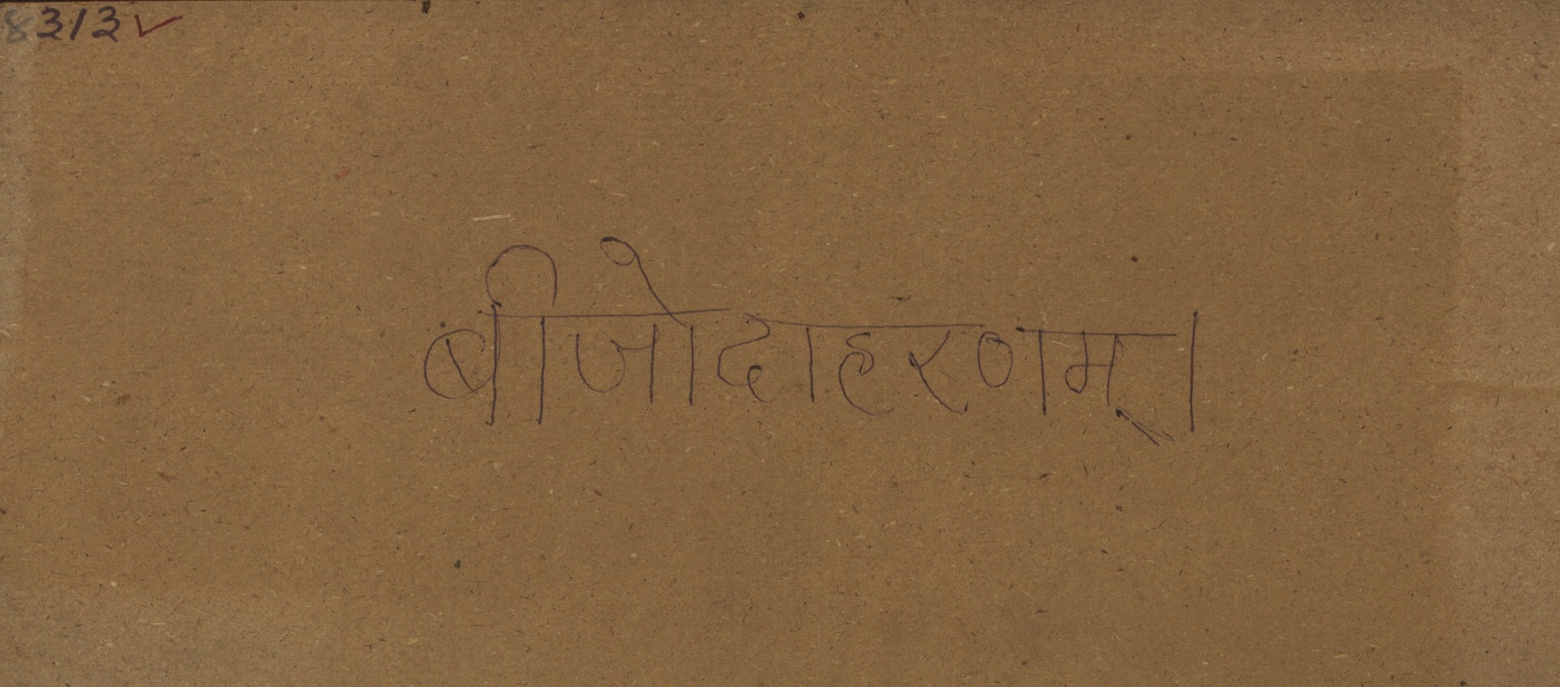 8313✓
बीजोदाहरणम्।